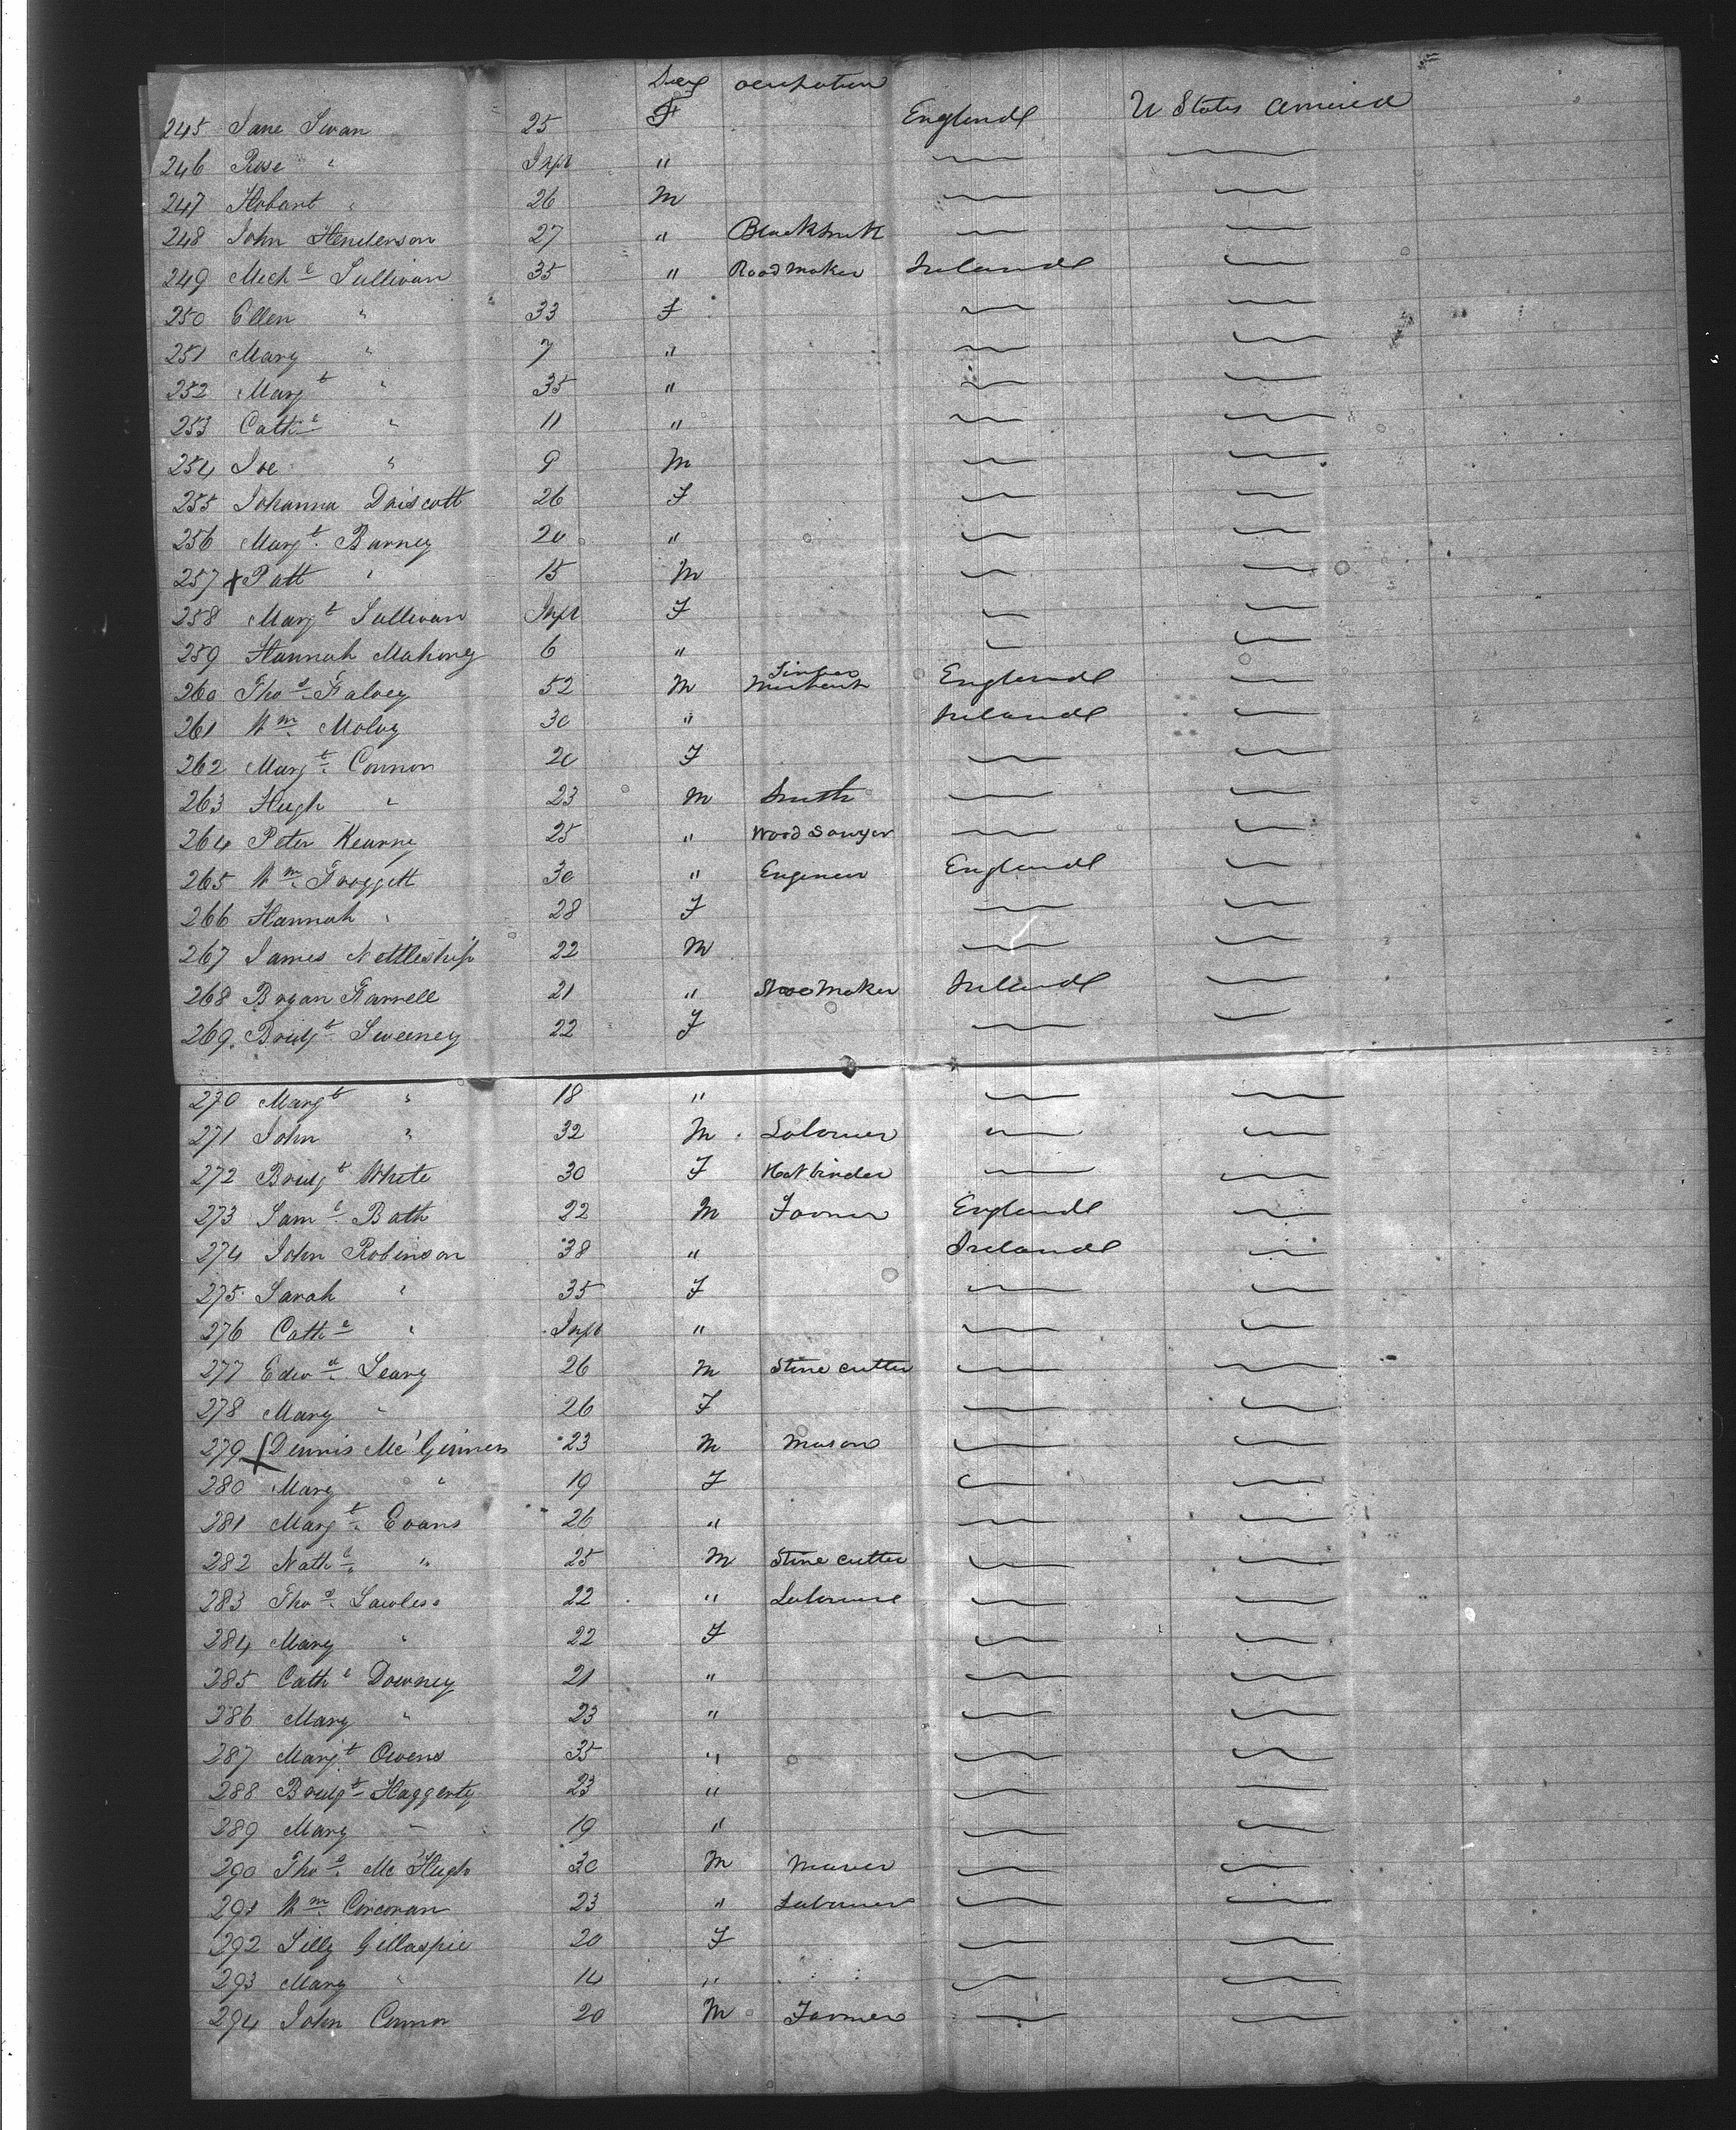 Sex occupation
245 Jane Swan 25 F England U States America
246 Rose " Inft "
247 Hobart " 26 M
248 John Henderson 27 " Blacksmith
249 Mich l Sullivan 35 " Road maker Ireland
250 Ellen " 33 F
251 Mary " 7 "
252 Marg t " 35 "
253 Cath e " 11 "
254 Joe " 9 M
255 Johanna Driscott 26 F
256 Marg t Barney 20 "
257 x Patt " 15 M
258 Marg t Sullivan Inft F
259 Hannah Mahony 6 "
260 Tho s Falvey 52 M Merchant England
261 W m Molvy 30 " Ireland
262 Marg t Connor 20 F
263 Hugh " 23 M Smith
264 Peter Kearny 25 " Wood Sawyer
265 W m Froggett 30 " Engineer England
266 Hannah " 28 F
267 James Nettleship 22 M
268 Bryan Farrell 21 " Shoe Maker Ireland
269 Bridg t Sweeney 22 F
270 Marg t " 18 "
271 John " 32 M Labourer
272 Bridg t White 30 F Hat binder
273 Sam l Bath 22 M Farmer England
274 John Robinson 38 " Ireland
275 Sarah " 35 F
276 Cath e " Inft "
277 Edw d Leary 26 M Stone cutter
278 Mary " 26 F
279 x Dennis Mc'Ginness 23 M Mason
280 Mary " 19 F
281 Marg t Evans 26 "
282 Nath l " 25 M Stone cutter
283 Tho s Lawless 22 " Labourer
284 Mary " 22 F
285 Cath e Downey 21 "
286 Mary " 23 "
287 Marg t Owens 35 "
288 Bridg t Haggerty 23 "
289 Mary " 19 "
290 Tho s Mc Hugh 30 M
291 W m Corcoran 23 " Labourer
292 Lilly Gillaspie 20 F
293 Mary " 14 "
294 John Connor 20 M Farmer